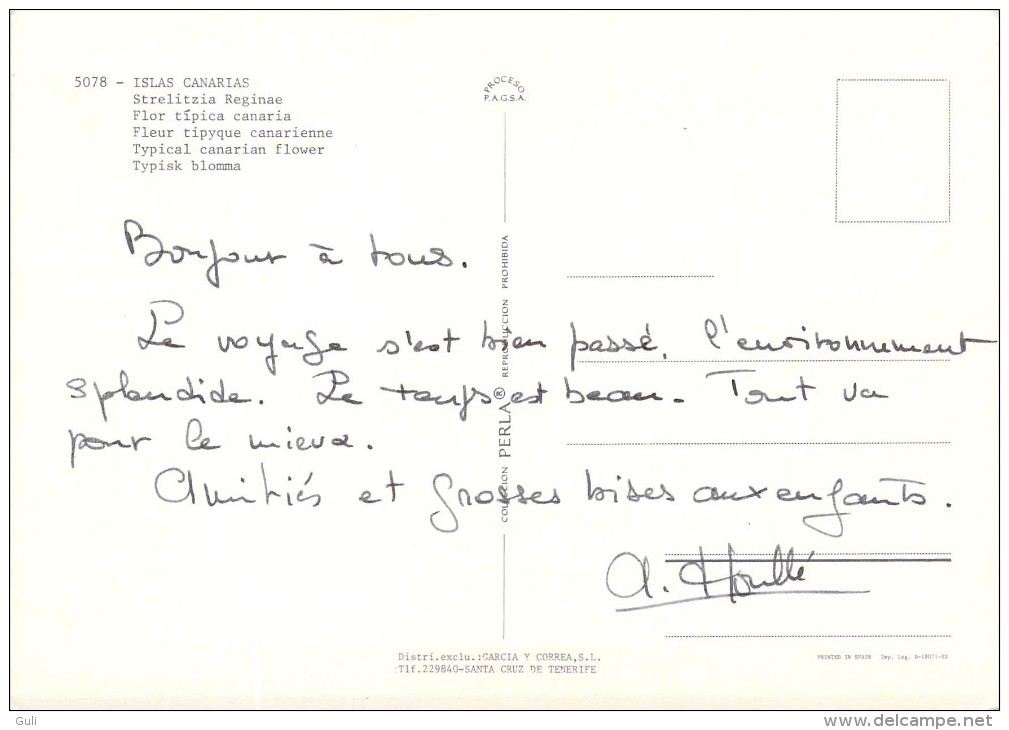 5078 - ISLAS CANARIAS
Strelitzia Reginae
Flor típica canaria
Fleur tipyque canarienne
Typical canarian flower
Typisk blomma
PROCESO
P.A.G.S.A.
Bonjour à tous.
Le voyage s'est bien passé, l'environnement
splendide. Le temps est beau. Tout va
pour le mieux.
Amitiés et grosses bises aux enfants.
A. Houllé
COLECCION PERLA® REPRODUCCION PROHIBIDA
Distri.exclu.:GARCIA Y CORREA,S.L.
Tlf.229840-SANTA CRUZ DE TENERIFE
PRINTED IN SPAIN Dep. Leg. B-18071-XX
Guli
www.delcampe.net